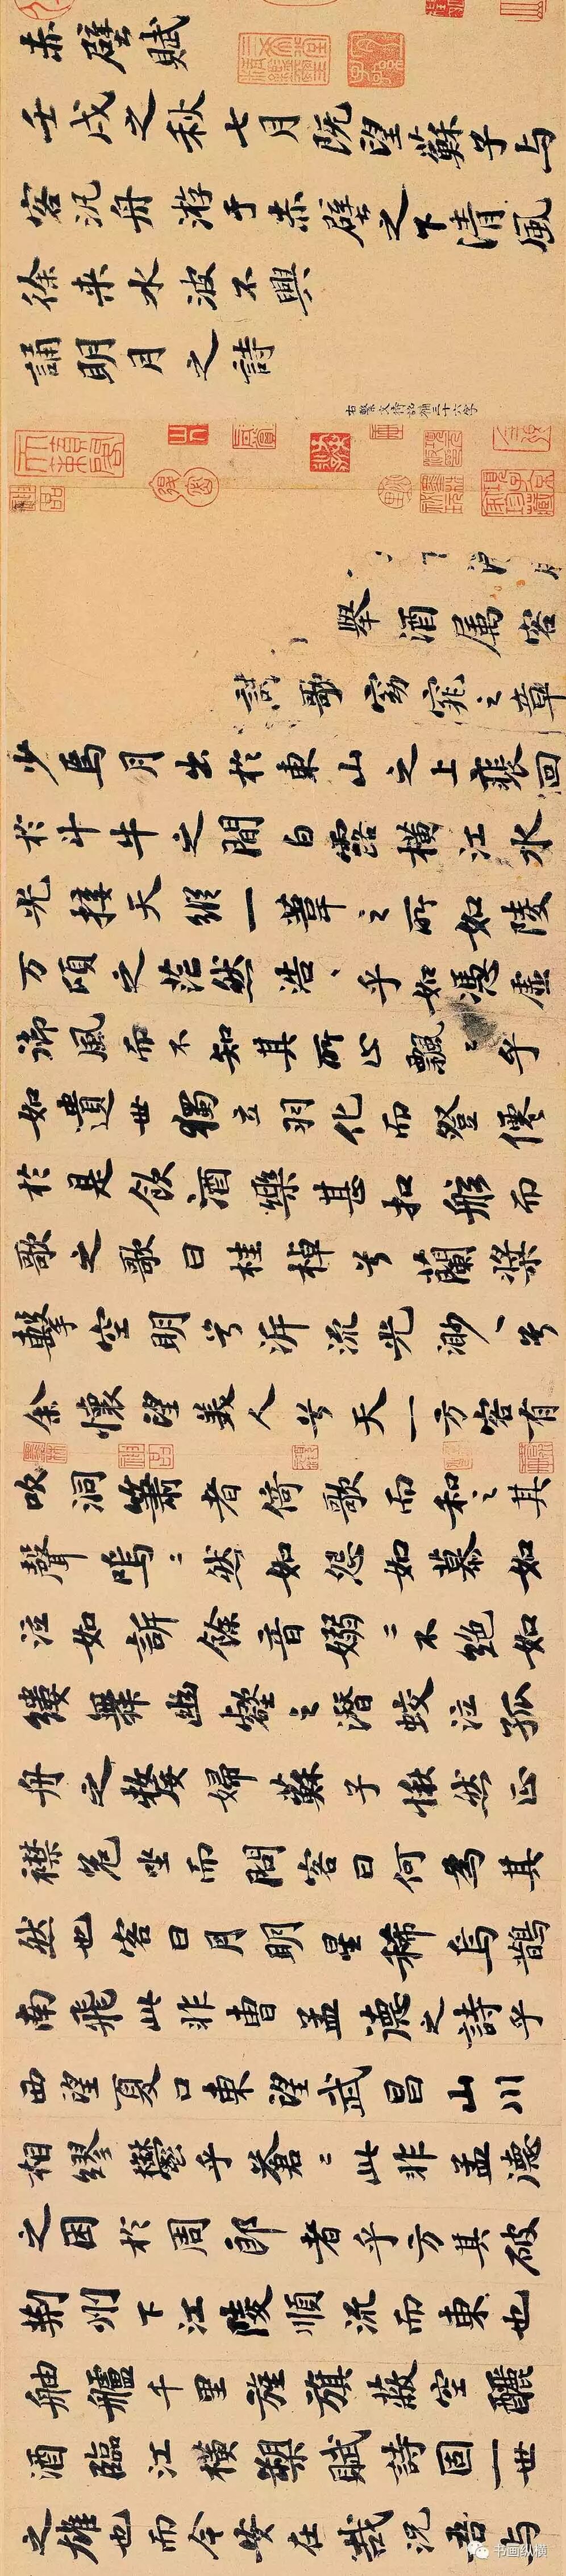 赤壁賦
壬戌之秋七月既望蘇子与
客汎舟游于赤壁之下清風
徐来水波不興
誦明月之詩
右繫文待詔補三十六字
舉酒属客
歌窈窕之章
少焉月出於東山之上裵回
於斗牛之間白露橫江水
光接天縱一葦之所如陵
万頃之茫然浩、乎如憑虛
御風而不知其所止飄〻乎
如遺世獨立羽化而登僊
於是飲酒樂甚扣舷而
歌之歌曰桂棹兮蘭槳
擊空明兮泝流光渺、兮
余懷望美人兮天一方客有
吹洞簫者倚歌而和之其
聲嗚〻然如怨如慕如
泣如訴餘音嫋〻不絕如
縷舞幽壑之潛蛟泣孤
舟之嫠婦蘇子愀然正
襟危坐而問客曰何為其
然也客曰月明星稀烏鵲
南飛此非曹孟德之詩乎
西望夏口東望武昌山川
相繆鬱乎蒼〻此非孟德
之困於周郎者乎方其破
荊州下江陵順流而東也
舳艫千里旌旗蔽空釃
酒臨江橫槊賦詩固一世
之雄也而今安在哉況吾与
书画纵横